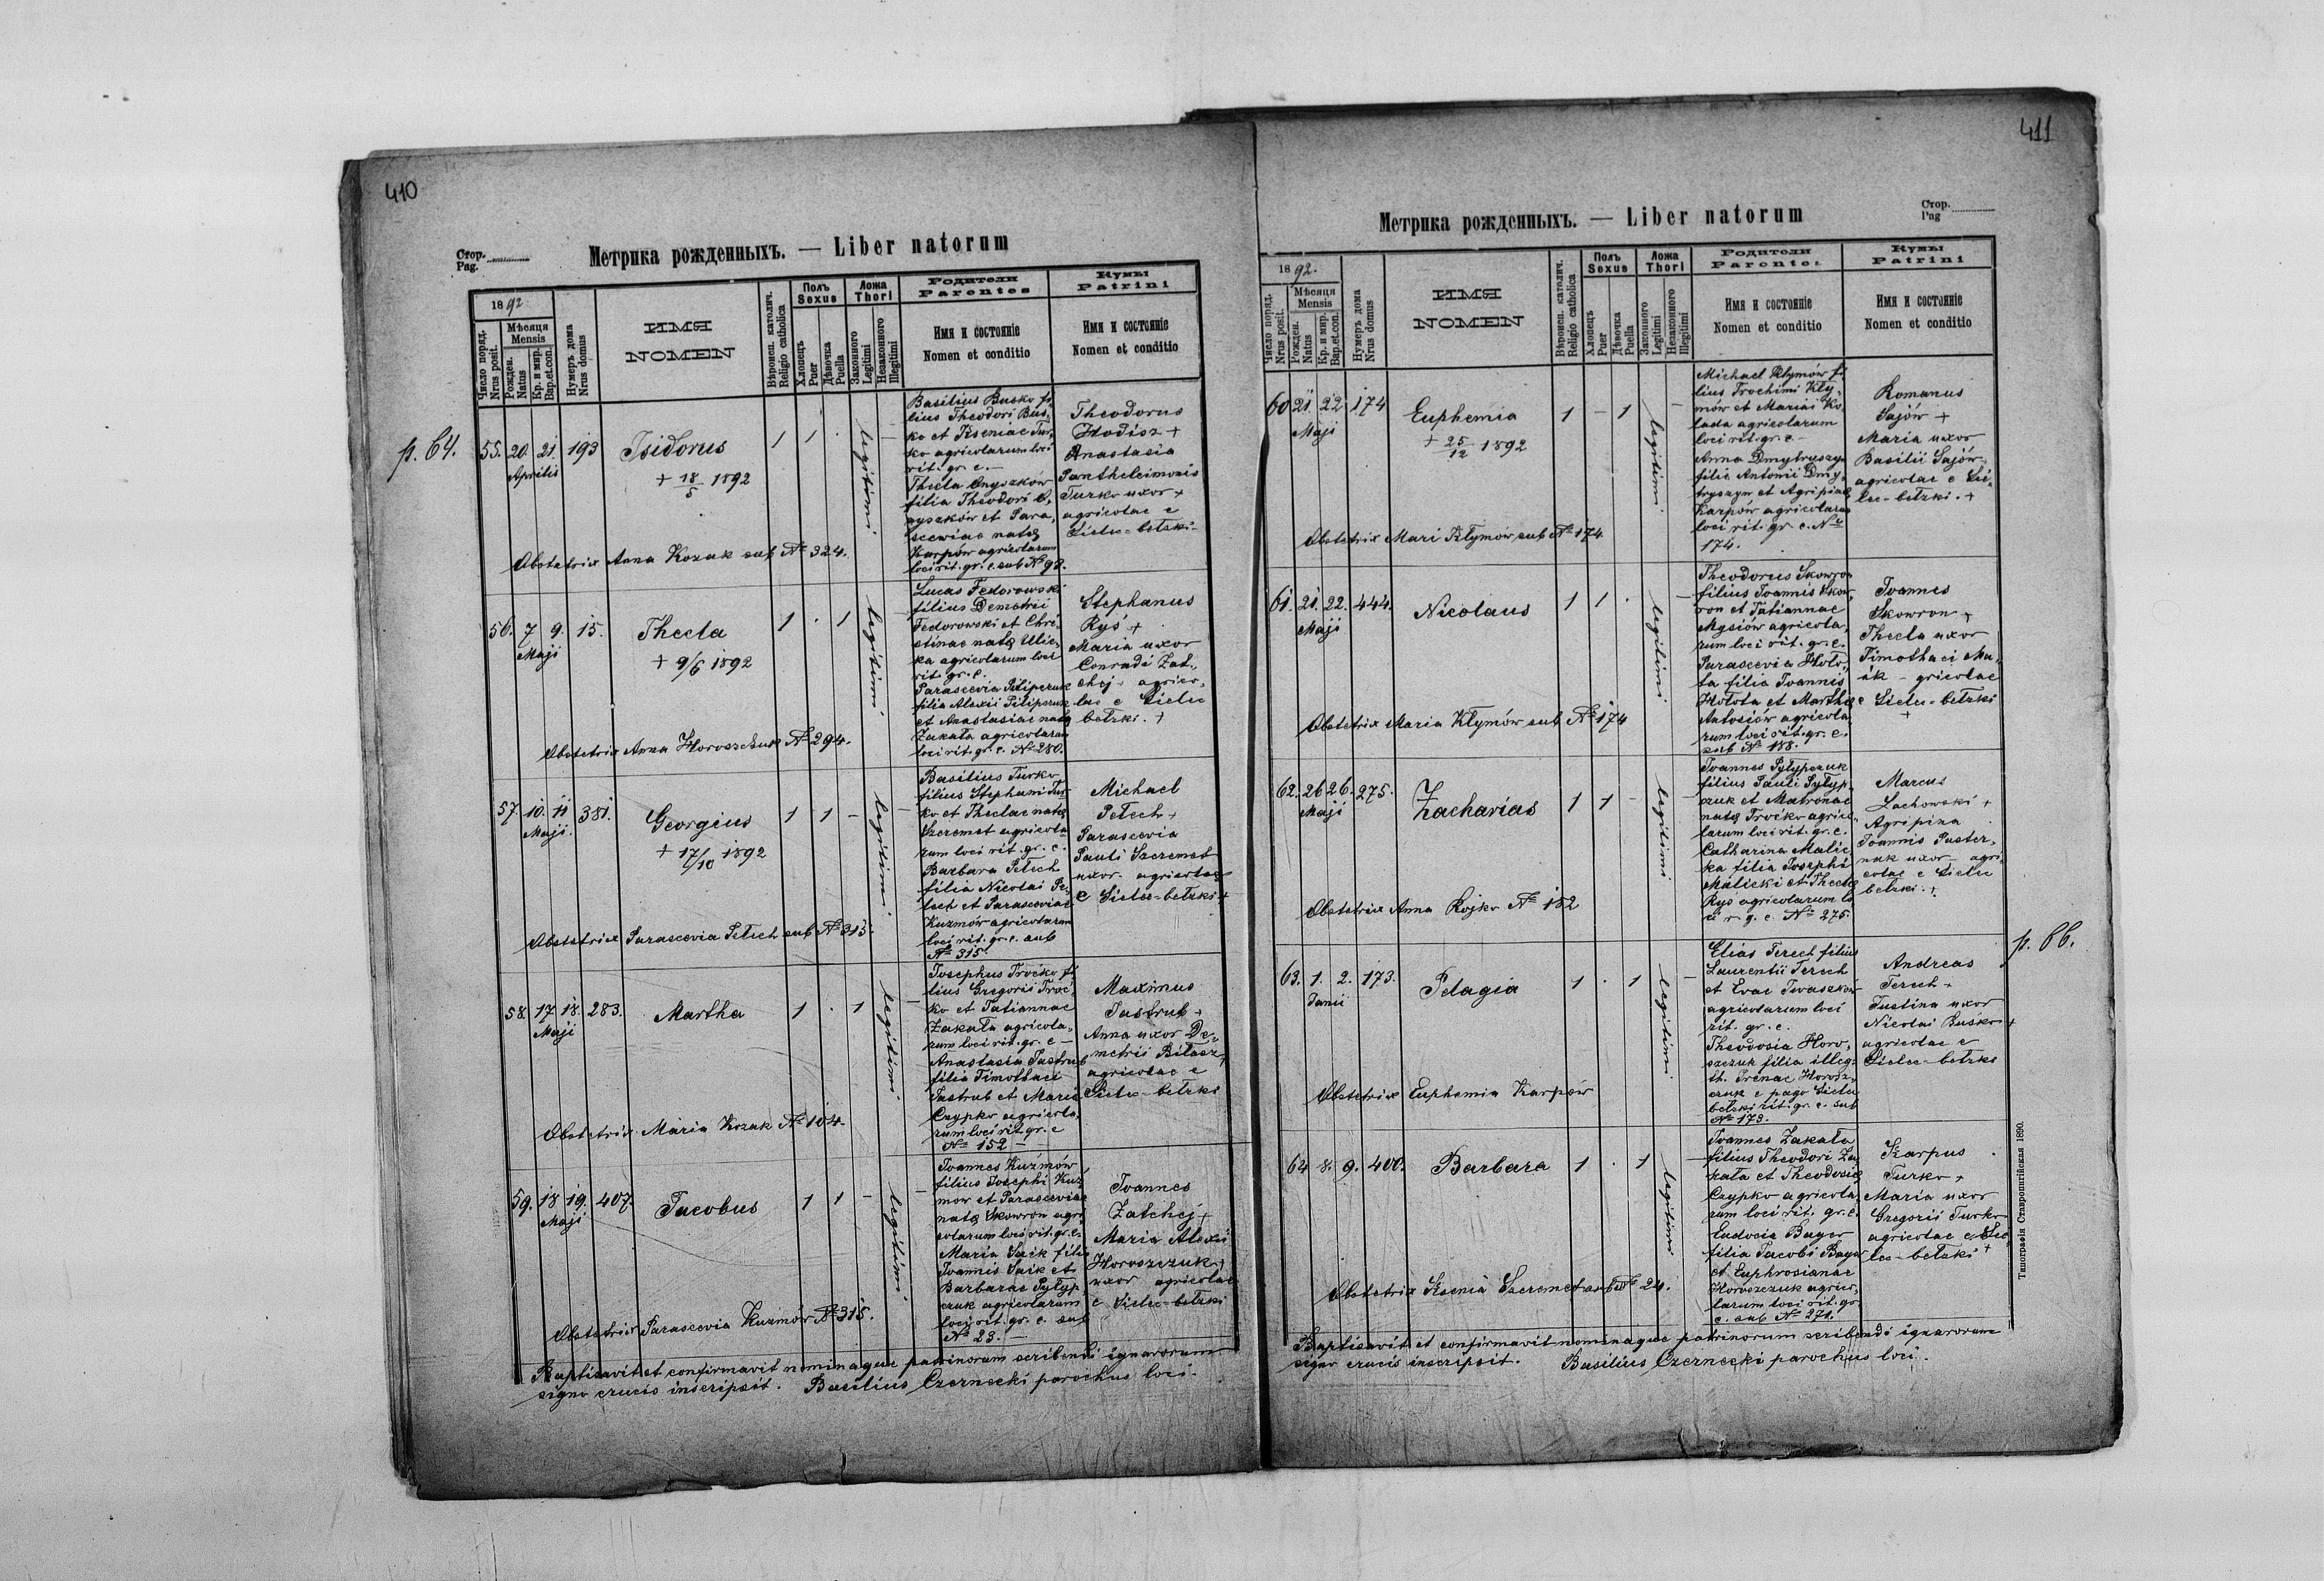 410
p. 64.
Стор.
Pag.
Метрика рожденныхъ. — Liber natorum
1892
Число поряд.
Nrus posit.
Мѣсяця
Mensis
Рожден.
Natus
Кр. и мир.
Bap.et.con.
Нумеръ дома
Nrus domus
ИМЯ
NOMEN
Вѣроисп. католич.
Religio catholica
Полъ
Sexus
Хлопецъ
Puer
Дѣвочка
Puella
Ложа
Thori
Законного
Legitimi
Незаконного
Illegitimi
Родители
Parentes
Имя и состояніе
Nomen et conditio
Кумы
Patrini
Имя и состояніе
Nomen et conditio
55. 20. 21. 193
Aprilis
Isidorus
+ 18/5 1892
1 1 .
legitimi
Basilius Busko fi
lius Theodori Bus,
ko et Kseniae Tur,
ko agricolarum loci
rit. gr. c. —
Thecla Onyszków
filia Theodori O,
nyszków et Para,
sceviae natę
Karpów agricolarum
loci rit. gr. c. sub № 98.
Theodorus
Hodisz +
Anastasia
Pantheleimonis
Turko uxor +
agricolae e
Sielec-bełzki-
Obstetrix Anna Kozak sub № 324.
56. 7 9. 15.
Maji
Thecla
+ 9/6 1892
1 . 1
legitimi
Lucas Fedorowski
filius Demetrii
Fedorowski et Chri,
stinae natę Ulic,
ka agricolarum loci
rit. gr. c.
Parascevia Pilipczuk
filia Alexii Pilipczuk
et Anastasiae natę
Zakała agricolarum
loci rit. gr. c. № 280.
Stephanus
Ryś +
Maria uxor
Conradi Zat,
chej + agrico,
lae e Sielec
bełzki. +
Obstetrix Anna Horoszczuk № 294.
57. 10. 11 381.
Maji.
Georgius
+ 17/10 1892
1 1 —
legitimi
Basilius Turko
filius Stephani Tur
ko et Theclae natę
Szeremet agricola
rum loci rit. gr. c.
Barbara Petech
filia Nicolai Pe,
tech et Parasceviae
Kuzmów agricolarum
loci rit. gr. c. sub
№ 315.
Michael
Petech +
Parascevia
Pauli Szeremet
uxor agricolae
e Sielec-bełzki +
Obstetrix Parascevia Petech sub № 315.
58. 17. 18. 283.
Maji
Martha
1 . 1
legitimi
Josephus Troćko fi
lius Gregorii Troć
ko et Tatiannae
Zakała agricola,
rum loci rit. gr. c —
Anastasia Jastrub
filia Timothaei
Jastrub et Marię
Czypko agricola,
rum loci rit. gr. c
№ 152 —
Maximus
Jastrub +
Anna uxor De,
metrii Biłasz +
agricolae e
Sielec-bełzki
Obstetrix Maria Kozak № 104.
59. 18 19. 407.
Maji
Jacobus
1 1 —
legitimi
Joannes Kuźmów
filius Josephi Kuź
mow et Parasceviae
natę Skowron agri
colarum loci rit. gr. c.
Maria Saik filia
Joannis Saik et
Barbarae Pyłyp
czuk agricolarum
loci rit. gr. c. sub
№ 23. —
Joannes
Zatchej +
Maria Alexii
Horoszczuk +
uxor agricolae
e Sielec-bełzki
Obstetrix Parascevia Kuzmów № 315.
Baptisavit et confirmavit nominaque patrinorum scribendi ignarorum
signo crucis inscripsit. Basilius Czernecki parochus loci.
411
Метрика рожденныхъ. — Liber natorum
Стор.
Pag
1892.
Число поряд.
Nrus posit.
Мѣсяця
Mensis
Рожден.
Natus
Кр. и мир.
Bap.et.con.
Нумеръ дома
Nrus domus
ИМЯ
NOMEN
Вѣроисп. католич.
Religio catholica
Полъ
Sexus
Хлопецъ
Puer
Дѣвочка
Puella
Ложа
Thori
Законного
Legitimi
Незаконного
Illegitimi
Родители
Parentes
Имя и состояніе
Nomen et conditio
Кумы
Patrini
Имя и состояніе
Nomen et conditio
60 21. 22. 174
Maji
Euphemia
+ 25/12 1892
1 — 1
legitimi
Michael Kłymów fi
lius Trochimi Kły,
mów et Mariai Ko
lada agricolarum
loci rit. gr. c. —
Anna Dmytruszyn
filie Antonii Dmy,
tryszyn et Agripinę
Karpów agricolarum
loci rit. gr. c. №
174.
Romanus
Sajów +
Maria uxor
Basilii Sajów
agricolae e Sie,
lec-bełzki. +
Obstetrix Mari Kłymów sub № 174
61. 21. 22. 444.
Maji
Nicolaus
1 1 .
legitimi
Theodorus Skowron
filius Joannis Skow,
ron et Tatiannae
Mysiów agricola,
rum loci rit. gr. c.
Parascevia Hoło,
ta filia Joannis
Hołota et Marthę
Antosiów agricola,
rum loci rit. gr. c.
sub № 188.
Joannes
Skowron +
Thecla uxor
Timothaei Ma,
ák — gricolae
e Sielec-bełzki
+
Obstetrix Maria Kłymów sub № 174
62. 26 26. 275.
Maji
Zacharias
1 1 —
legitimi
Joannes Pyłypczuk
filius Pauli Pyłyp,
czuk et Matronae
natę Troćko agrico
larum loci rit. gr. c.
Catharina Malic,
ka filia Josephi
Malicki et Theclę
Rys agricolarum lo
ci r. g. c. № 275.
Marcus
Lachowski +
Agripina
Joannis Paster,
nak uxor — agri,
colae e Sielec
bełzki. +
Obstetrix Anna Kojko № 182
p. 66.
63. 1. 2. 173.
Junii
Pelagia
1 . 1
legitimi
Elias Terech filius
Laurentii Terech
et Evae Iwaszkow
agricolarum loci
rit. gr. c.
Theodosia Horo,
szczuk filia illeg.
th. Irenae Horosz,
czuk e pago Sielec
bełzki rit. gr. c. sub
№ 173.
Andreas
Terech +
Justina uxor
Nicolai Buśko +
agricolae e
Sielec-bełzki
Obstetrix Euphemia Karpów
64 8. 9. 400.
Barbara
1 . 1
legitimi
Joannes Zakała
filius Theodori Za,
kała et Theodosię
Czypko agricola,
rum loci rit. gr. c.
Eudocia Bayer
filia Jacobi Bayer
et Euphrosianae
Horoszczuk agrico,
larum loci rit. gr.
c. sub № 271.
Karpus
Turko +
Maria uxor
Gregorii Turko
agricolae e Sie,
lec-bełzki +
Obstetrix Ksenia Szeremet sub № 24.
Baptisavit et confirmavit nominaque patrinorum scribendi ignarorum
signo crucis inscripsit. Basilius Czernecki parochus loci.
Типографія Ставропигійская 1890.